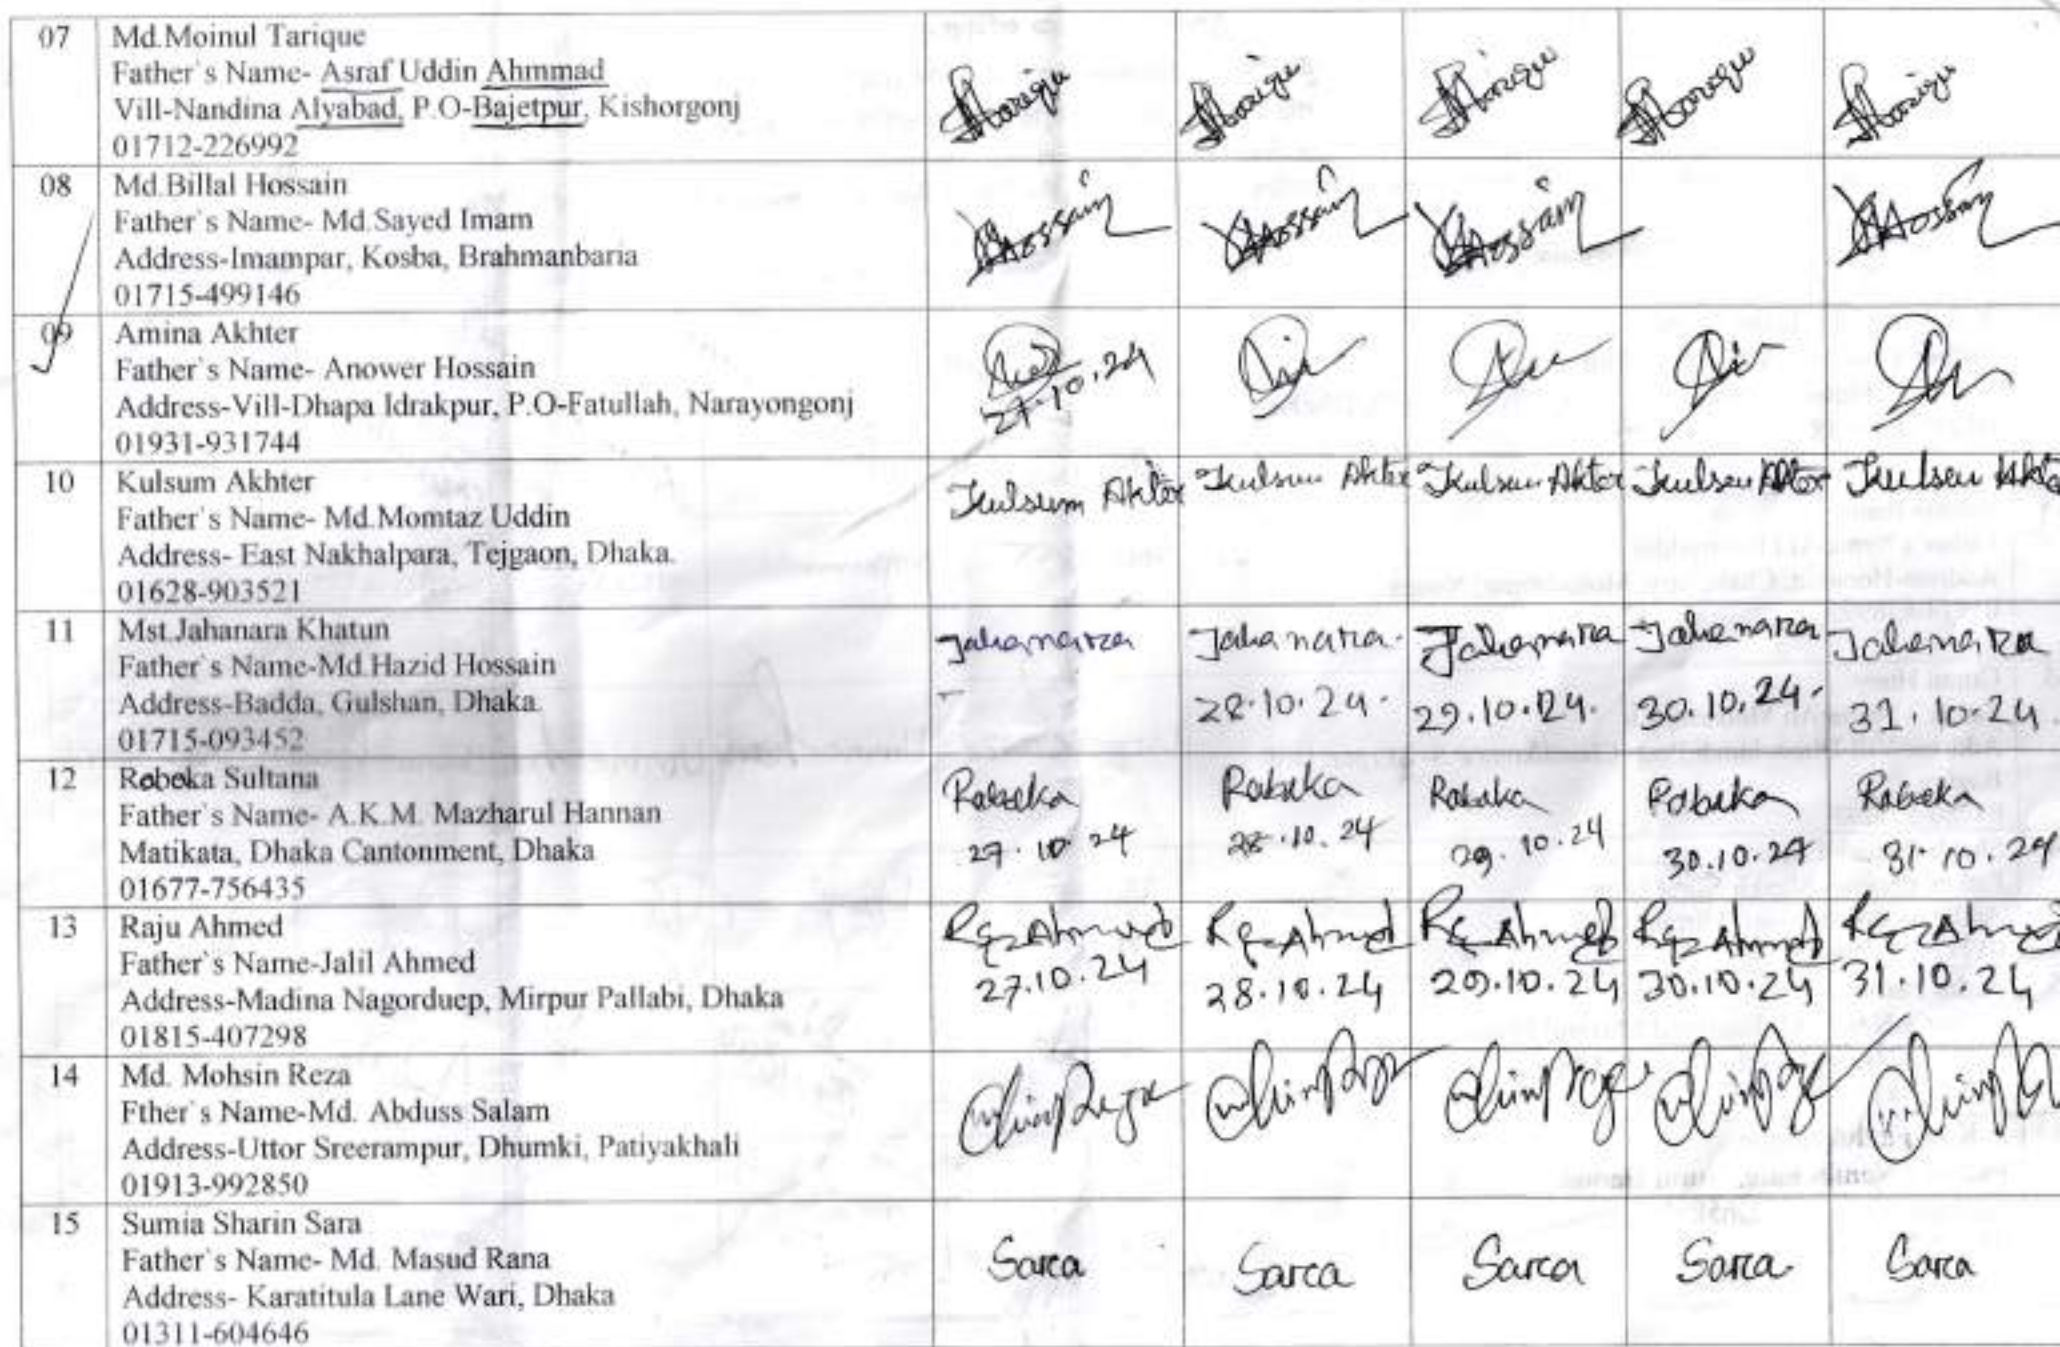 07 Md.Moinul Tarique
Father`s Name- Asraf Uddin Ahmmad
Vill-Nandina Alyabad, P.O-Bajetpur, Kishorgonj
01712-226992
08 Md.Billal Hossain
Father`s Name- Md.Sayed Imam
Address-Imampar, Kosba, Brahmanbaria
01715-499146
Hossain Hossain Hossain Hossain
09 Amina Akhter
Father`s Name- Anower Hossain
Address-Vill-Dhapa Idrakpur, P.O-Fatullah, Narayongonj
01931-931744
27.10.24
10 Kulsum Akhter
Father`s Name- Md.Momtaz Uddin
Address- East Nakhalpara, Tejgaon, Dhaka.
01628-903521
Kulsum Akter Kulsum Akter Kulsum Akter Kulsum Akter Kulsum Akter
11 Mst.Jahanara Khatun
Father`s Name-Md.Hazid Hossain
Address-Badda, Gulshan, Dhaka.
01715-093452
Jahanara Jahanara Jahanara Jahanara Jahanara
28.10.24. 29.10.24. 30.10.24. 31.10.24
12 Rebeka Sultana
Father`s Name- A.K.M. Mazharul Hannan
Matikata, Dhaka Cantonment, Dhaka
01677-756435
Rabeka Rabeka Rabeka Rabeka Rabeka
27.10.24 28.10.24 29.10.24 30.10.24 31.10.24
13 Raju Ahmed
Father`s Name-Jalil Ahmed
Address-Madina Nagorduep, Mirpur Pallabi, Dhaka
01815-407298
Ahmed Ahmed Ahmed Ahmed Ahmed
27.10.24 28.10.24 29.10.24 30.10.24 31.10.24
14 Md. Mohsin Reza
Fther`s Name-Md. Abduss Salam
Address-Uttor Sreerampur, Dhumki, Patiyakhali
01913-992850
15 Sumia Sharin Sara
Father`s Name- Md. Masud Rana
Address- Karatitula Lane Wari, Dhaka
01311-604646
Sara Sara Sara Sara Sara